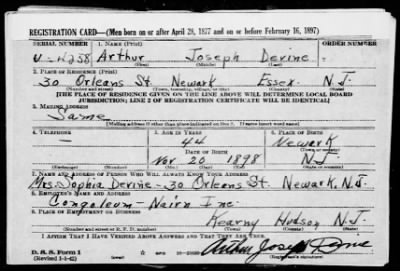 REGISTRATION CARD—(Men born on or after April 28, 1877 and on or before February 16, 1897)
SERIAL NUMBER 1. NAME (Print) ORDER NUMBER
U-4258 Arthur Joseph Devine
(First) (Middle) (Last)
2. PLACE OF RESIDENCE (Print)
30 Orleans St. Newark Essex N.J.
(Number and street) (Town, township, village, or city) (County) (State)
[THE PLACE OF RESIDENCE GIVEN ON THE LINE ABOVE WILL DETERMINE LOCAL BOARD
JURISDICTION; LINE 2 OF REGISTRATION CERTIFICATE WILL BE IDENTICAL]
3. MAILING ADDRESS
Same
[Mailing address if other than place indicated on line 2. If same insert word same]
4. TELEPHONE 5. AGE IN YEARS 6. PLACE OF BIRTH
— 44 Newark
DATE OF BIRTH (Town or county)
Nov 20 1898 N.J.
(Exchange) (Number) (Mo.) (Day) (Yr.) (State or country)
7. NAME AND ADDRESS OF PERSON WHO WILL ALWAYS KNOW YOUR ADDRESS
Mrs. Sophia Devine-30 Orleans St. Newark, N.J.
8. EMPLOYER'S NAME AND ADDRESS
Congoleum-Nairn Inc.
9. PLACE OF EMPLOYMENT OR BUSINESS
Kearny Hudson N.J.
(Number and street or R. F. D. number) (Town) (County) (State)
I AFFIRM THAT I HAVE VERIFIED ABOVE ANSWERS AND THAT THEY ARE TRUE.
D. S. S. Form 1
(Revised 1-1-42)
Arthur Joseph Devine